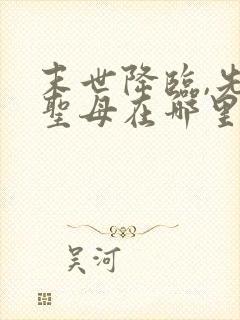 末世降臨,先
聖母在哪里
吴河